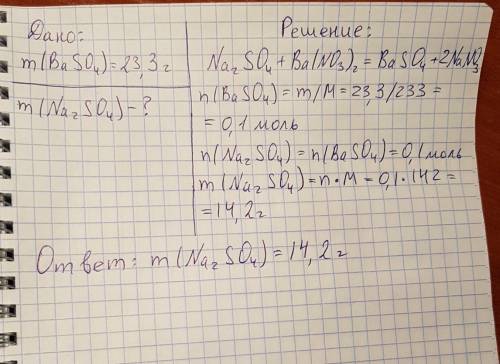 Дано:
m(BaSO₄)=23,3г
m(Na₂SO₄)-?
Решение:
Na₂SO₄+Ba(NO₃)₂=BaSO₄+2NaNO₃
n(BaSO₄)=m/M=23,3/233=
=0,1 моль
n(Na₂SO₄)=n(BaSO₄)=0,1моль
m(Na₂SO₄)=n·M=0,1·142=
=14,2г
Ответ: m(Na₂SO₄)=14,2г